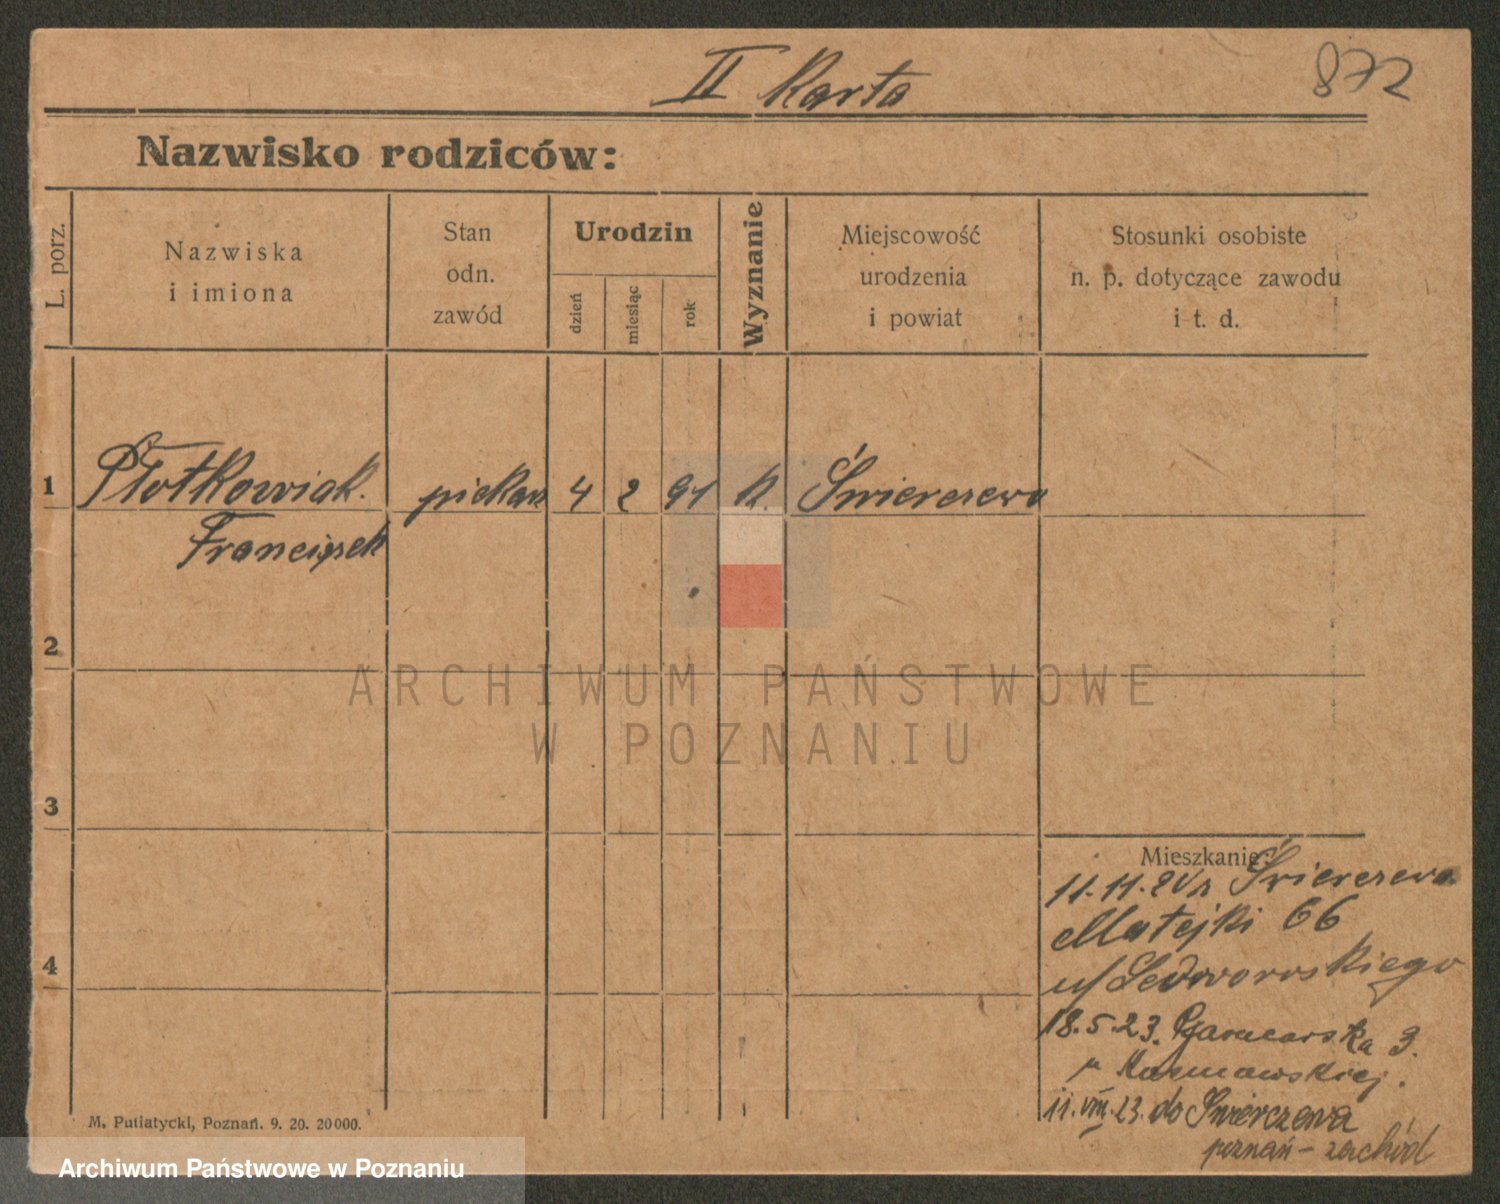 II Karta
872
Nazwisko rodziców:
L. porz.
Nazwiska
i imiona
Stan
odn.
zawód
Urodzin
dzień
miesiąc
rok
Wyznanie
Miejscowość
urodzenia
i powiat
Stosunki osobiste
n. p. dotyczące zawodu
i t. d.
1 Płotkowiak. piekarz 4 2 91 k. Świerczewo
Franciszek
2
ARCHIWUM PAŃSTWOWE
W POZNANIU
3
Mieszkanie:
11.11. Świerczewo
Matejki 66
4
18.5.23. 3.
11.VIII.23. do Świerczewa
poznań - zachód
M. Putiatycki, Poznań. 9. 20. 20000.
Archiwum Państwowe w Poznaniu